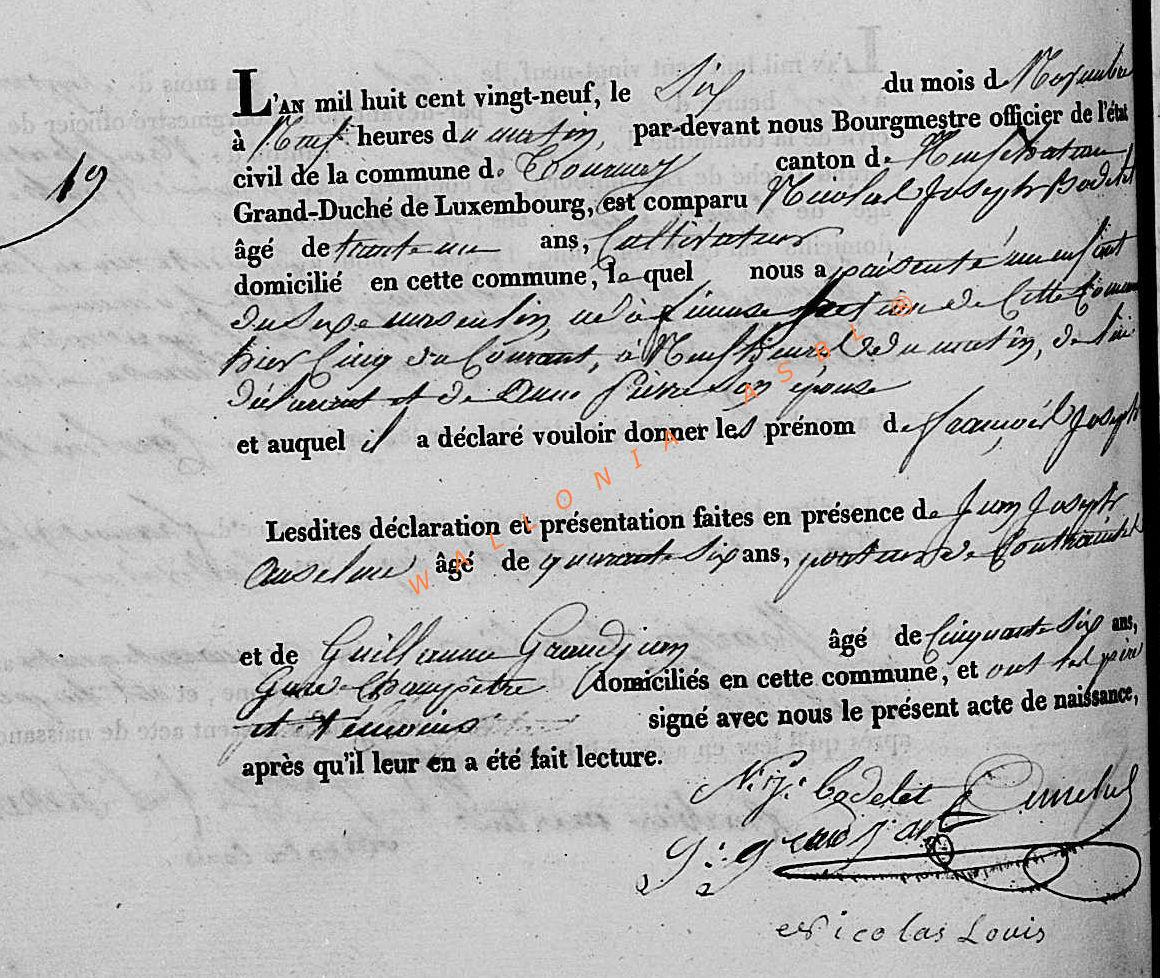 19
L'AN mil huit cent vingt-neuf, le Six du mois de Novembre
à Neuf heures du matin, par-devant nous Bourgmestre officier de l'état
civil de la commune de Tournay canton de Neufchateau,
Grand-Duché de Luxembourg, est comparu Nicolas Joseph Bodelet
âgé de trente un ans, Cultivateur
domicilié en cette commune, lequel nous a présenté un enfant
du Sexe masculin, né à section de Cette Commune
hier Cinq du Courant, à Neuf heures du matin, de lui
déclarant et de Anne Pierre Son épouse
et auquel il a déclaré vouloir donner les prénom de François Joseph
Lesdites déclaration et présentation faites en présence de Jean Joseph
Anselme âgé de quarante Six ans, porteur de Contraintes
et de Guillaume Grandjean âgé de Cinquante Six ans,
Garde Champêtre domiciliés en cette commune, et ont les père
et témoins signé avec nous le présent acte de naissance,
après qu'il leur en a été fait lecture.
N. J. Bodelet
G: grandjan
Nicolas Louis
WALLONIA ASBL ®